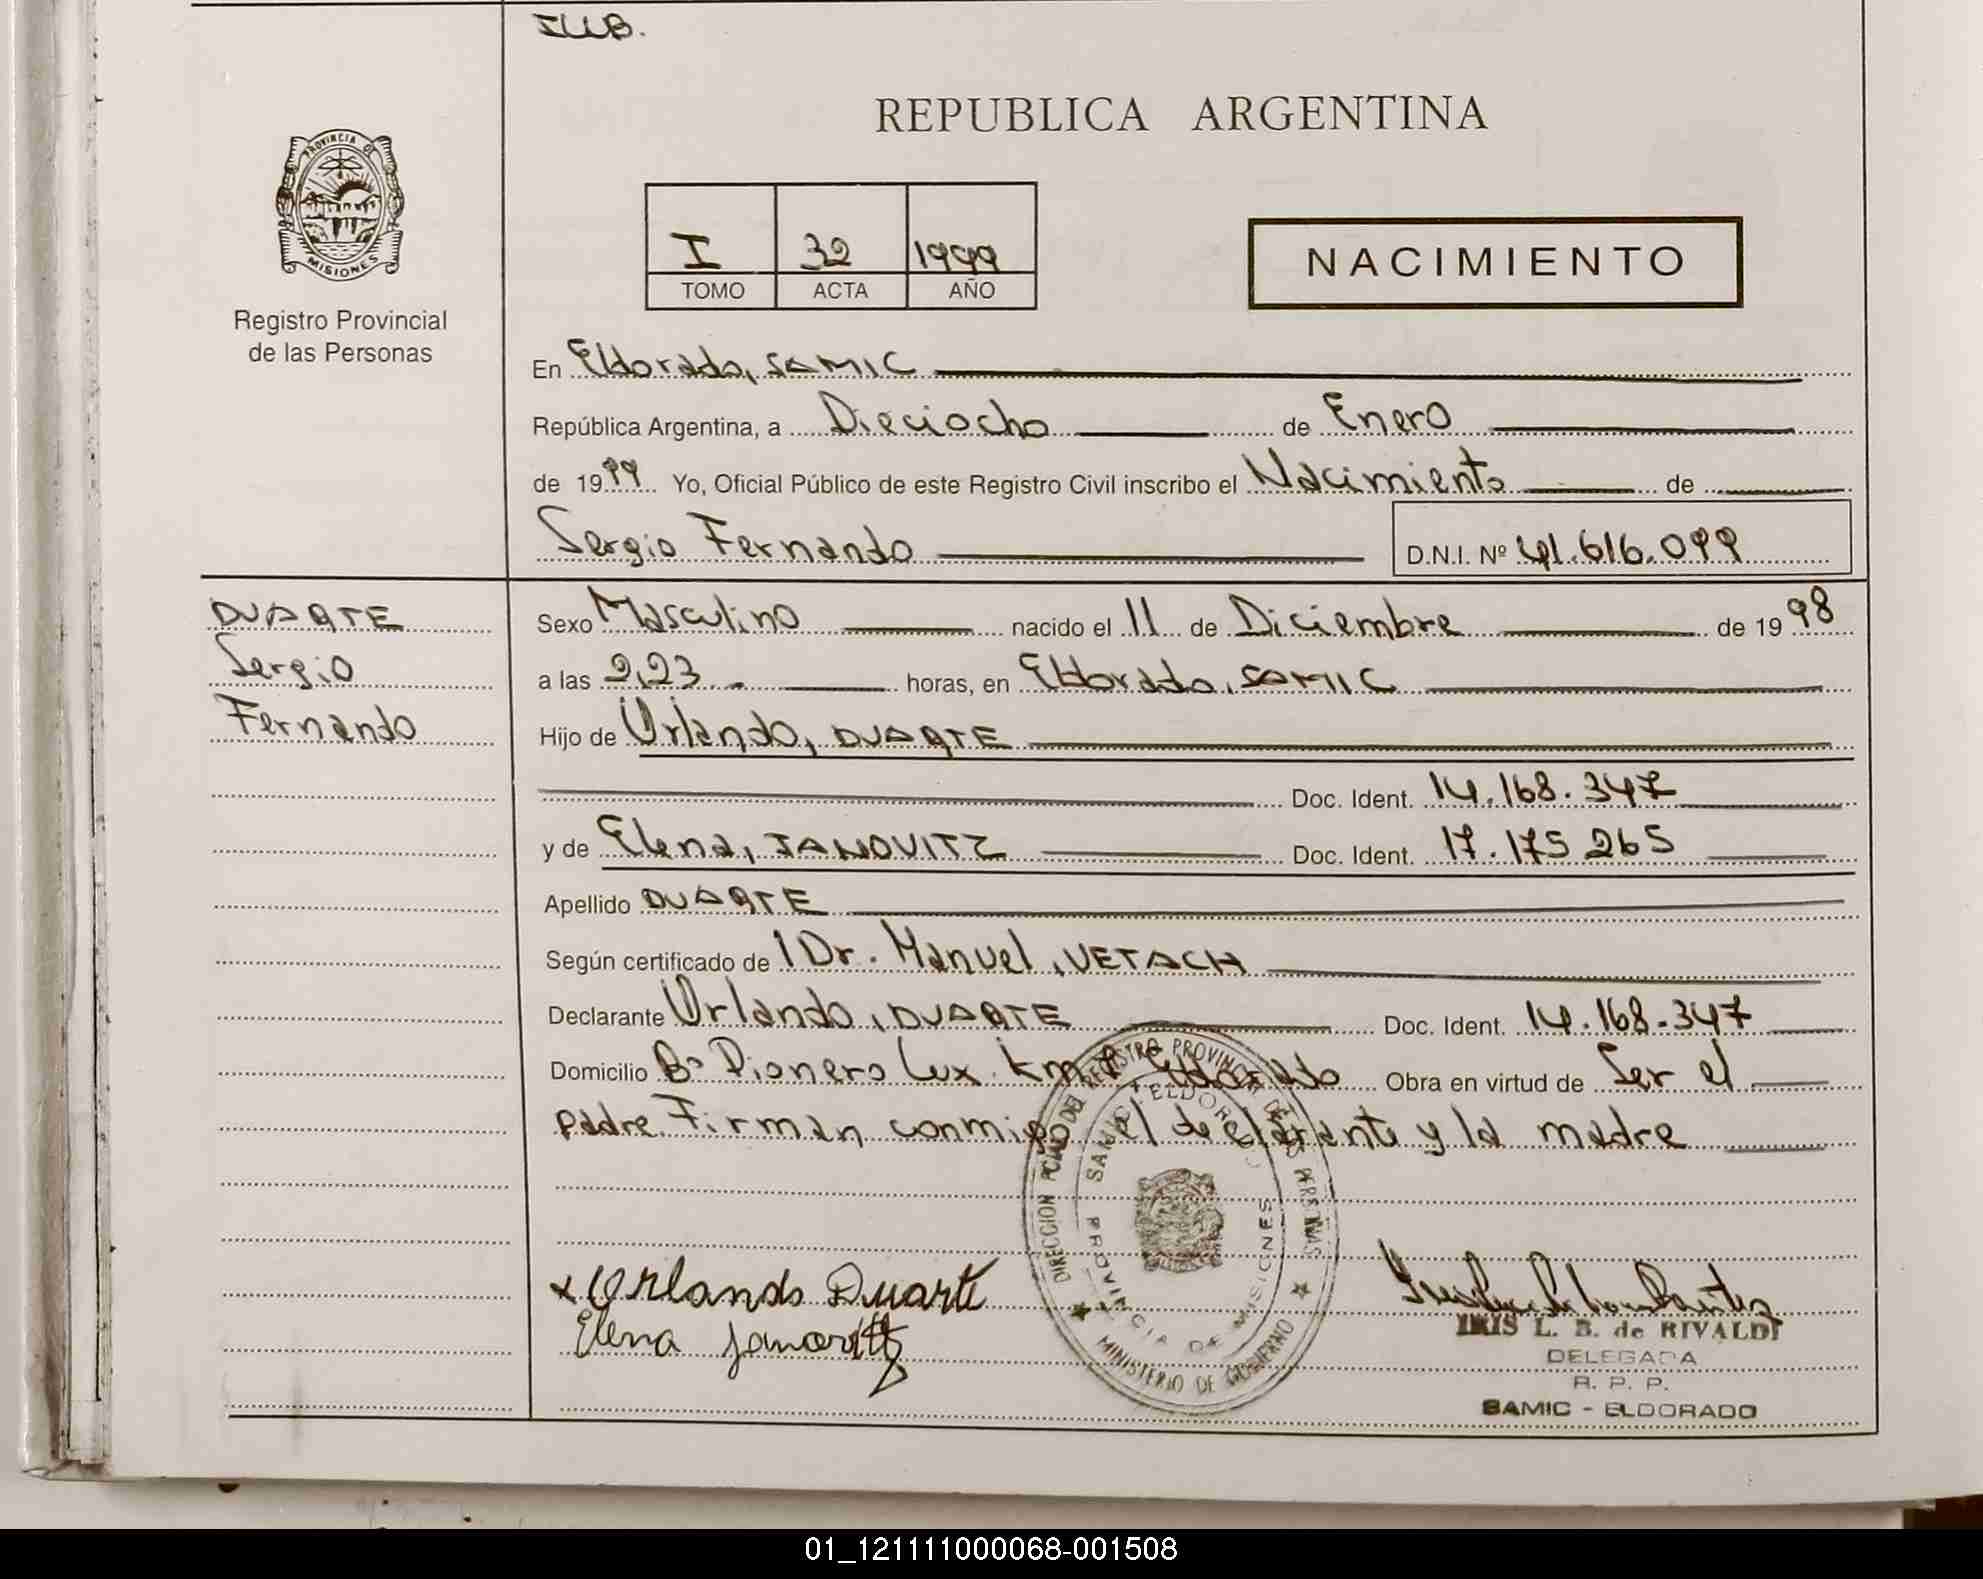 IUB.
REPUBLICA ARGENTINA
PROVINCIA DE
MISIONES
Registro Provincial
de las Personas
I 32 1999
TOMO ACTA AÑO
NACIMIENTO
En Eldorado, SAMIC
República Argentina, a Dieciocho de Enero
de 1999 Yo, Oficial Público de este Registro Civil inscribo el Nacimiento de
Sergio Fernando D.N.I. Nº 41.616.099
DUARTE
Sergio
Fernando
Sexo Masculino nacido el 11 de Diciembre de 1998
a las 2,23 horas, en Eldorado, SAMIC
Hijo de Orlando, DUARTE
Doc. Ident. 14.168.347
y de Elena, JANOVITZ Doc. Ident. 17.175 265
Apellido DUARTE
Según certificado de l Dr. Manuel, VETACH
Declarante Orlando, DUARTE Doc. Ident. 14.168.347
Domicilio Bº Pionero Lux km Eldorado Obra en virtud de Ser el
padre. Firman conmigo el declarante y la madre
DIRECCION DEL REGISTRO PROVINCIAL DE LAS PERSONAS
SAMIC - ELDORADO
PROVINCIA DE MISIONES
MINISTERIO DE GOBIERNO
x Orlando Duarte
Elena Janovitz
IRIS L. B. de RIVALDI
DELEGADA
R. P. P.
SAMIC - ELDORADO
01_121111000068-001508